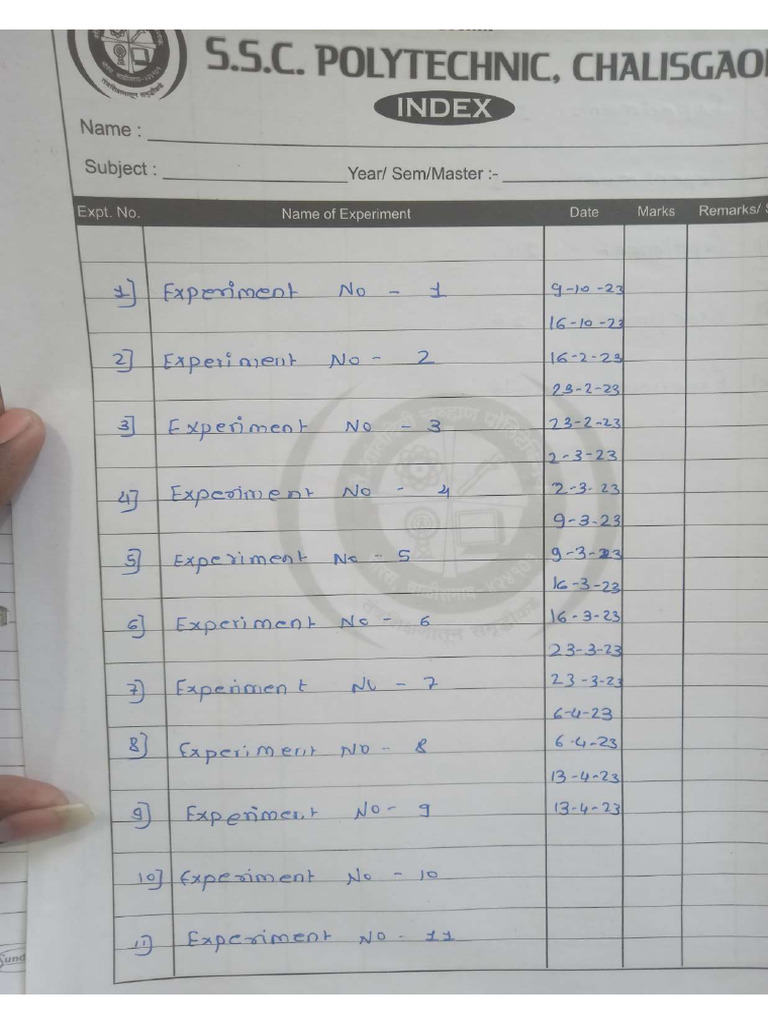 S.S.C. POLYTECHNIC, CHALISGAO
INDEX
Name :
Subject : Year/ Sem/Master :-
Expt. No. Name of Experiment Date Marks Remarks/ S
1] Experiment No - 1 9-10-23
16-10-23
2] Experiment No - 2 16-2-23
23-2-23
3] Experiment No - 3 23-2-23
2-3-23
4] Experiment No - 4 2-3-23
9-3-23
5] Experiment No - 5 9-3-23
16-3-23
6] Experiment No - 6 16-3-23
23-3-23
7] Experiment No - 7 23-3-23
6-4-23
8] Experiment No - 8 6-4-23
13-4-23
9] Experiment No - 9 13-4-23
10] Experiment No - 10
11] Experiment No - 11
Sund